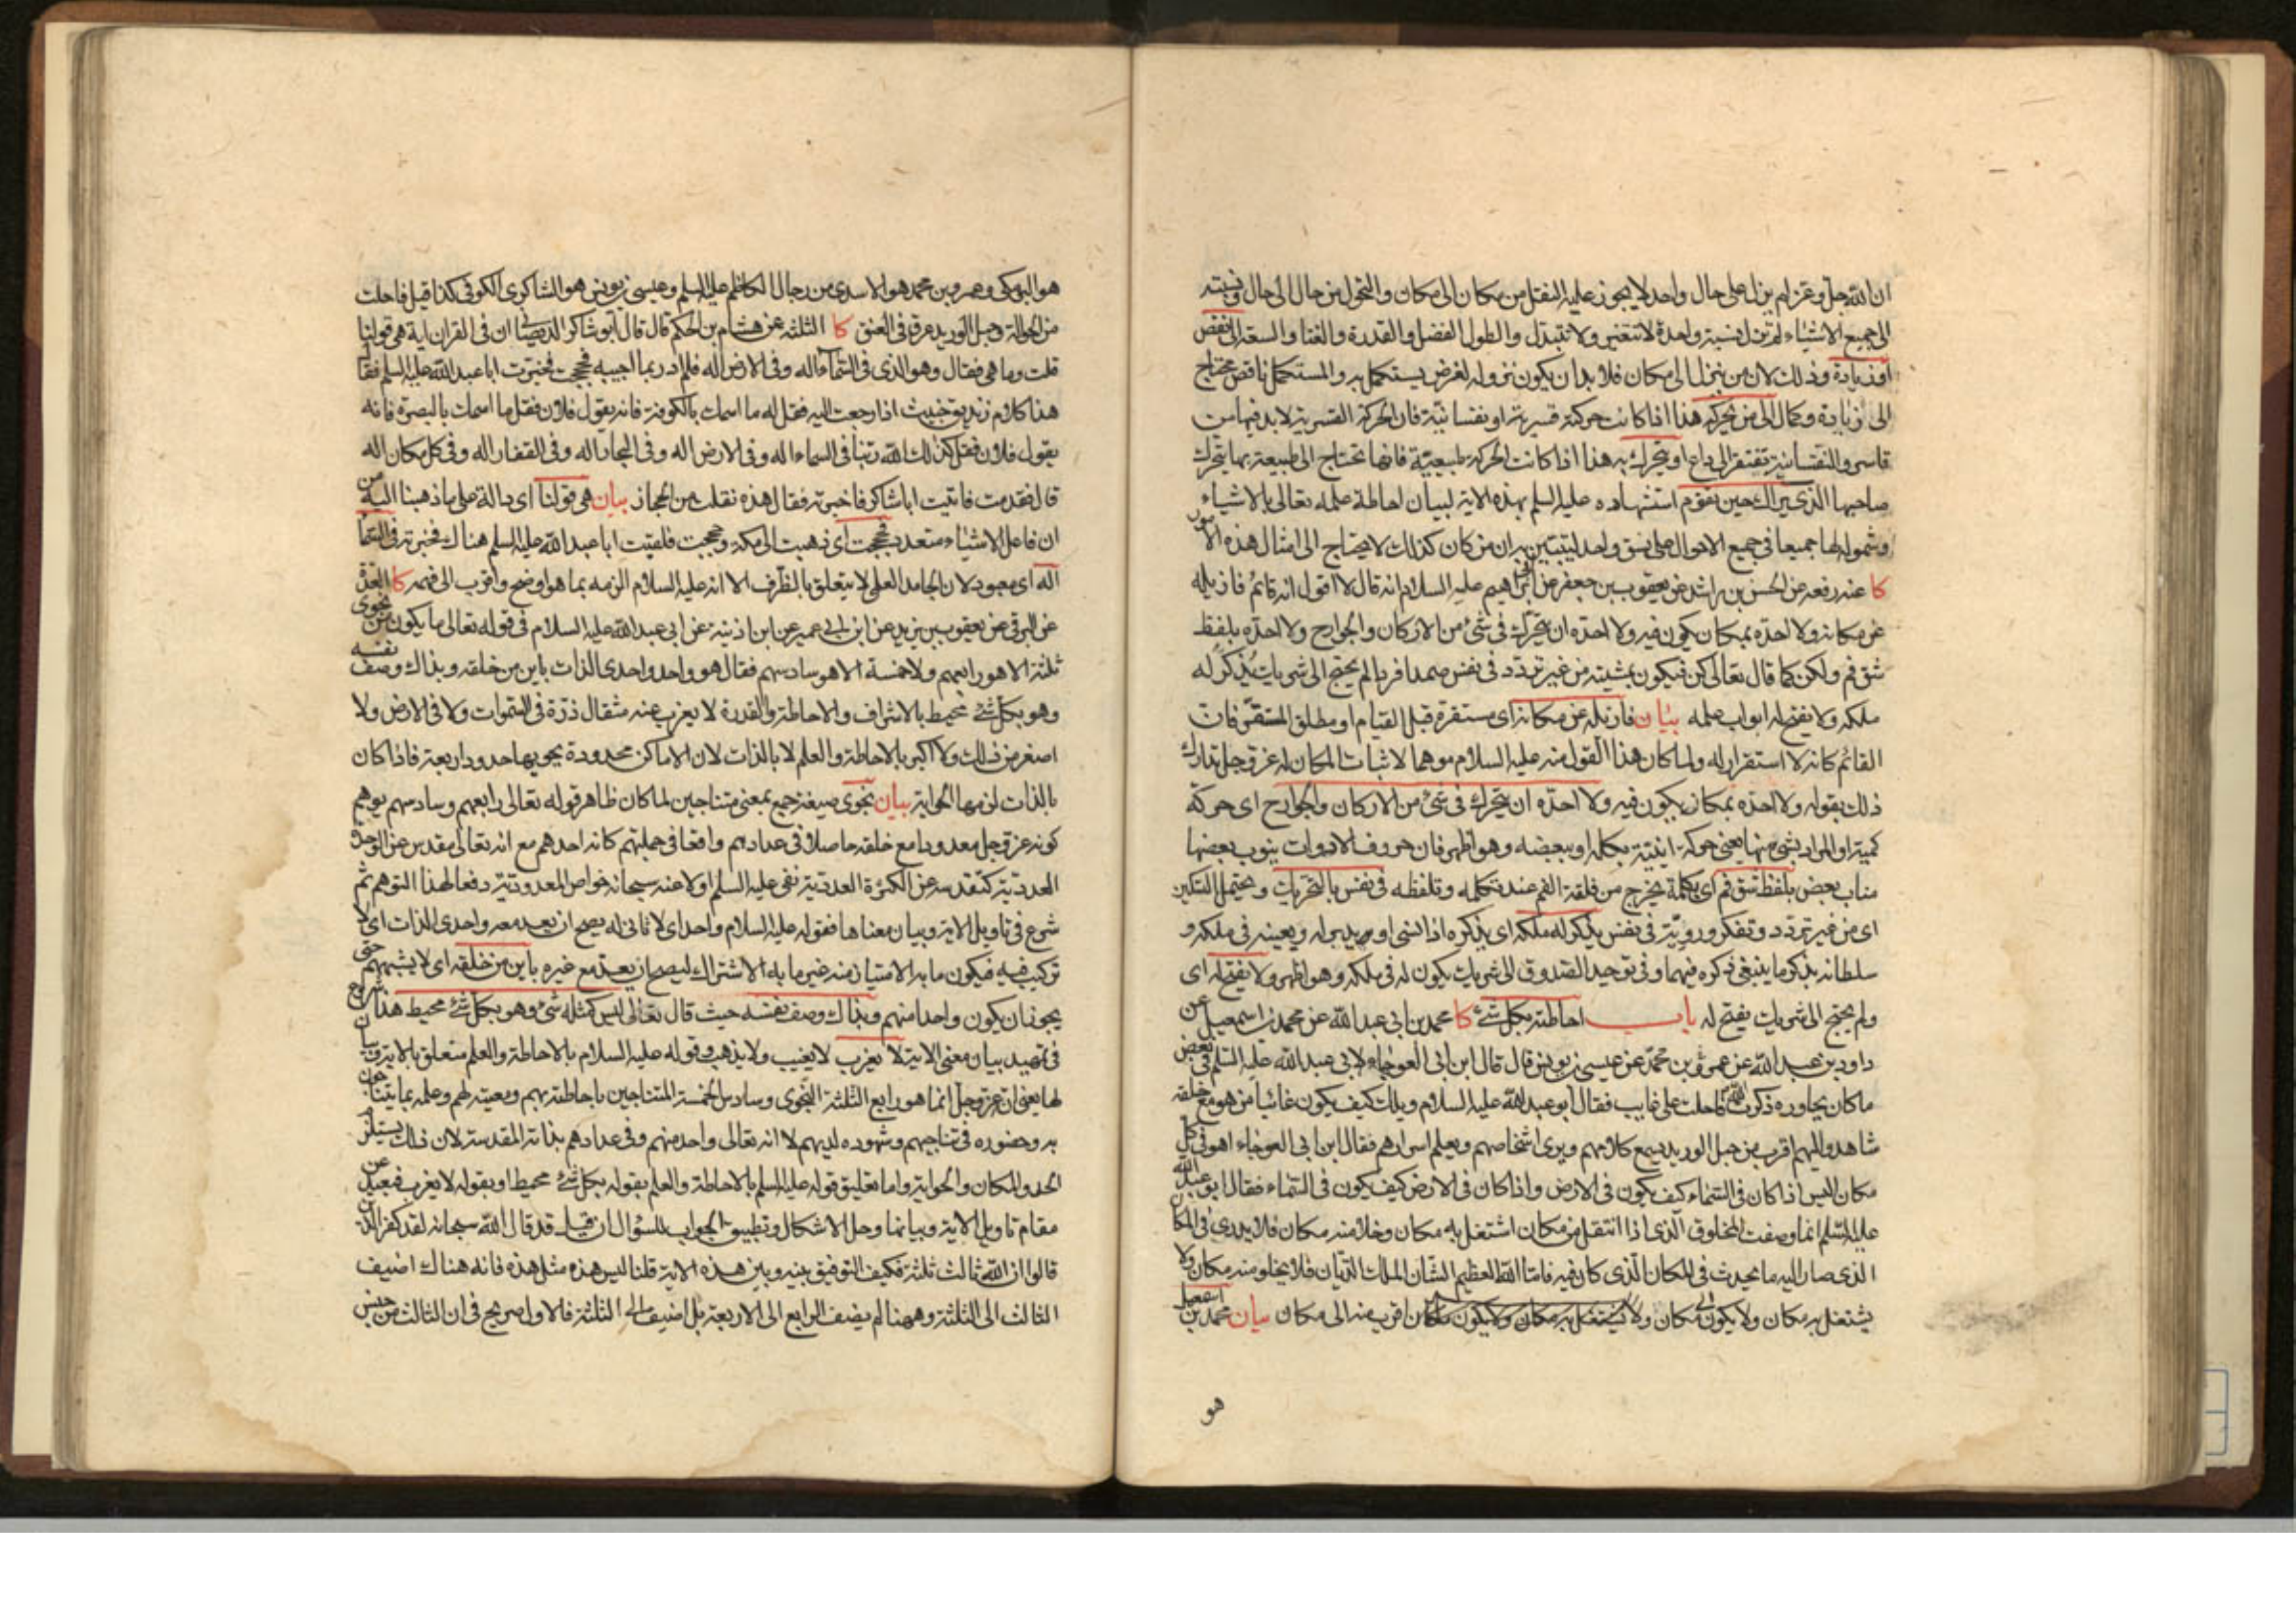 ان الله جل وعز لم يزل على حال واحد لا يجوز عليه النقل من مكان الى مكان والتحول من حال الى حال ونسبته
الى جميع الاشياء لم تزل نسبة واحدة لا تتغير ولا تتبدل والطول الفضل والقدرة والغنا والسعة الى نقص
او زيادة وذلك لان من ينزل الى مكان فلا بد ان يكون نزوله لغرض يستكمل به والمستكمل ناقص محتاج
الى زيادة وكمال الى من يحركه هذا اذا كانت حركته قسرية او نفسانية فان الحركة القسرية لا بد فيها من
قاسر والنفسانية تفتقر الى داع او يتحرك به هذا اذا كانت الحركة طبيعية فانها تحتاج الى طبيعة بها يتحرك
صاحبها الذى يراك حين تقوم استشهاده عليه السلم بهذه الاية لبيان احاطة علمه تعالى بالاشياء
وشموله لها جميعا فى جميع الاحوال على نسق واحد ليتبين به ان من كان كذلك لا يحتاج الى امثال هذه الامور
كا عنه رفعه عن الحسن بن راشد عن يعقوب بن جعفر عن ابى ابراهيم عليه السلام انه قال لا اقول انه قائم فازيله
عن مكانه ولا احده بمكان يكون فيه ولا احده ان يتحرك فى شئ من الاركان والجوارح ولا احده بلفظ
شق فم ولكن كما قال تعالى كن فيكون بمشيته من غير تردد فى نفس صمدا فردا لم يحتج الى شريك يذكر له
ملكه ولا يفتح له ابواب علمه بيان فازيله عن مكانه اى مستقره قبل القيام او مطلق المستقر فان
القائم كانه لا استقرار له ولما كان هذا القول منه عليه السلام موهما لاثبات المكان له عز وجل تدارك
ذلك بقوله ولا احده بمكان يكون فيه ولا احده ان يتحرك فى شئ من الاركان والجوارح اى حركة
كمية او المراد بشئ منها يعنى حركة اينية بكله او ببعضه وهو اظهر فان حروف الادوات ينوب بعضها
مناب بعض بلفظ شق فم اى بكلمة يخرج من فلقة الفم عند تكلمه وتلفظه فى نفس بالتحريك ويحتمل التسكين
اى من غير تردد وتفكر وروية فى نفس يذكر له ملكه اى يذكره اذا نسى او يريد به له ويعينه فى ملكه و
سلطانه بذكر ما ينبغى ذكره فيهما وفى توحيد الصدوق الى شريك يكون له فى ملكه وهو اظهر ولا يفتح له اى
ولم يحتج الى شريك يفتح له باب احاطته بكل شئ كا محمد بن ابى عبد الله عن محمد بن اسمعيل عن
داود بن عبد الله عن عمرو بن محمد عن عيسى بن يونس قال قال ابن ابى العوجاء لابى عبد الله عليه السلم فى بعض
ما كان يحاوره ذكرت الله فاحلت على غايب فقال ابو عبد الله عليه السلام ويلك كيف يكون غائبا من هو مع خلقه
شاهد واليهم اقرب من حبل الوريد يسمع كلامهم ويرى اشخاصهم ويعلم اسرارهم فقال ابن ابى العوجاء اهو فى كل
مكان اليس اذا كان فى السماء كيف يكون فى الارض واذا كان فى الارض كيف يكون فى السماء فقال ابو عبد الله
عليه السلم انما وصفت المخلوق الذى اذا انتقل من مكان اشتغل به مكان وخلا منه مكان فلا يدرى فى المكان
الذى صار اليه ما يحدث فى المكان الذى كان فيه فاما الله العظيم الشان الملك الديان فلا يخلو منه مكان ولا
يشتغل به مكان ولا يكون الى مكان اقرب منه الى مكان بيان محمد بن اسمعيل
هو
هو البرمكى وعمرو بن محمد هو الاسدى من رجال الكاظم عليه السلم وعيسى بن يونس هو الشاكرى الكوفى كذا قيل فاحلت
من الحوالة وحبل الوريد عرق فى العنق كا الثلثة عن هشام بن الحكم قال قال ابو شاكر الديصانى ان فى القران اية هى قولنا
قلت وما هى فقال وهو الذى فى السماء اله وفى الارض اله فلم ادر بما اجيبه فحججت فخبرت ابا عبد الله عليه السلم فقال
هذا كلام زنديق خبيث اذا رجعت اليه فقل له ما اسمك بالكوفة فانه يقول فلان فقل ما اسمك بالبصرة فانه
يقول فلان فقل كذلك الله ربنا فى السماء اله وفى الارض اله وفى البحار اله وفى القفار اله وفى كل مكان اله
قال فقدمت فاتيت ابا شاكر فاخبرته فقال هذه نقلت من الحجاز بيان هى قولنا اى دالة على ما ذهبنا اليه من
ان فاعل الاشياء متعدد فحججت اى ذهبت الى مكة وحججت فلقيت ابا عبد الله عليه السلم هناك فخبرته فى السماء
اله اى معبود لان الجامد العلمى لا يتعلق بالظرف الا انه عليه السلام الزمه بما هو اوضح واقرب الى فهمه كا العدة
عن البرقى عن يعقوب بن يزيد عن ابن ابى عمير عن ابن اذينه عن ابى عبد الله عليه السلام فى قوله تعالى ما يكون من نجوى
ثلثة الا هو رابعهم ولا خمسة الا هو سادسهم فقال هو واحد واحدى الذات باين من خلقه وبذاك وصف نفسه
وهو بكل شئ محيط بالاشراف والاحاطة والقدرة لا يعزب عنه مثقال ذرة فى السموات ولا فى الارض ولا
اصغر من ذلك ولا اكبر بالاحاطة والعلم لا بالذات لان الاماكن محدودة يحويها حدود اربعة فاذا كان
بالذات لزمها الحواية بيان نجوى صيغة جمع بمعنى متناجين لما كان ظاهر قوله تعالى رابعهم وسادسهم يوهم
كونه عز وجل معدودا مع خلقه حاصلا فى عدادهم واقعا فى جملتهم كانه احدهم مع انه تعالى مقدس عن الوحدة
العددية كتقدسه عن الكثرة العددية نفى عليه السلم اولا عنه سبحانه خواص المعدودية دفعا لهذا التوهم ثم
شرع فى تاويل الاية وبيان معناها فقوله عليه السلام واحد اى لا ثانى له يصح ان يعد معه واحدى الذات اى لا
تركيب فيه فيكون ما به الامتياز منه غير ما به الاشتراك ليصح ان يعد مع غيره باين من خلقه اى لا يشبههم حتى
يجوز ان يكون واحدا منهم وبذاك وصف نفسه حيث قال تعالى ليس كمثله شئ وهو بكل شئ محيط هذا شروع
فى تمهيد بيان معنى الاية لا يعزب لا يغيب ولا يذهب وقوله عليه السلام بالاحاطة والعلم متعلق بالاية وبيان
لها يعنى انه عز وجل انما هو رابع الثلثة النجوى وسادس الخمسة المتناجين باحاطته بهم ومعيته لهم وعلمه بما يتناجون
به وحضوره فى تناجيهم وشهوده لديهم لا انه تعالى واحد منهم وفى عدادهم بذاته المقدسة لان ذلك يستلزم
الحد والمكان والحواية واما تعليق قوله عليه السلم بالاحاطة والعلم بقوله بكل شئ محيط او بقوله لا يعزب فبعيد عن
مقام تاويل الاية وبيانها وحل الاشكال وتطبيق الجواب للسؤال ان قيل قد قال الله سبحانه لقد كفر الذين
قالوا ان الله ثالث ثلثة فكيف التوفيق بينه وبين هذه الاية قلنا ليس هذه مثل هذه فانه هناك اضيف
الثالث الى الثلثة وههنا لم يضف الرابع الى الاربعة بل اضيف الى الثلثة فالاول صريح فى ان الثالث من جنس